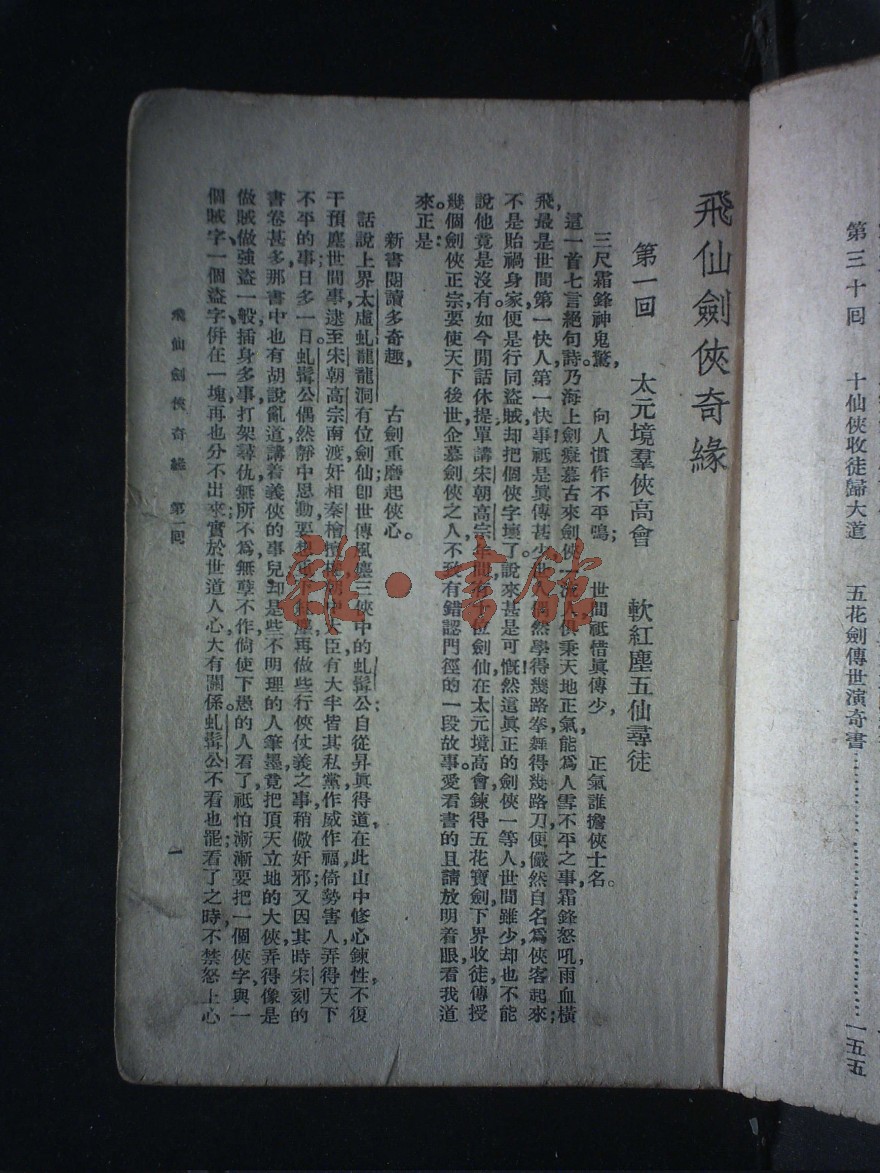 第三十回 十仙俠收徒歸大道 五花劍傳世演奇書……一五五
飛仙劍俠奇緣
第一回 太元境羣俠高會 軟紅塵五仙尋徒
三尺霜鋒神鬼驚，向人慣作不平鳴；世間祇惜眞傳少，正氣誰擔俠士名。
這一首七言絕句詩，乃海上劍癡慕古來劍俠一流人，俱秉天地正氣，能爲人雪不平之事，霜鋒怒吼，雨血橫
飛，最是世間第一快人，第一快事。祇是眞傳甚少，世人偶然學得幾路拳，舞得幾路刀，便儼然自名爲俠客起來；
不是貽禍身家，便是行同盜賊，却把個俠字壞了，說來甚是可慨。然這眞正的劍俠一等人，世間雖少，却也不能
說他竟是沒有。如今閒話休提，單講宋朝高宗年間，有幾位劍仙在太元境高會，鍊得五花寶劍，下界收徒，傳授
幾個劍俠正宗，要使天下後世企慕劍俠之人，不致有錯認門徑的一段故事。愛看書的且請放明着眼，看我道
來。正是：
新書閱讀多奇趣，古劍重磨起俠心。
話說上界太虛虬龍龍洞有位劍仙，卽世傳風塵三俠中的虬髯公；自從昇眞得道，在此山中修心鍊性，不復
干預塵世間事，逮至宋朝高宗南渡，奸相秦檜擅權，朝中大臣有大半皆其私黨，作威作福，倚勢害人，弄得天下
不平的事日多一日。虬髯公偶然靜中思動，要想下紅塵再做些行俠仗義之事，稍儆奸邪；又因其時宋刻的
書卷甚多，那書中也有胡說亂道，講着義俠的事兒，却是些不明理的人筆墨，竟把頂天立地的大俠，弄得像是
做賊、做強盜一般，插身多事，打架尋仇，無所不爲，無孽不作；倘使下愚的人看了，祇怕漸漸要把一個俠字，與一
個賊字、一個盜字，併在一塊，再也分不出來；實於世道人心大有關係。虬髯公不看也罷，看了之時，不禁怒上心
飛仙劍俠奇緣 第一回 一
雜·書館